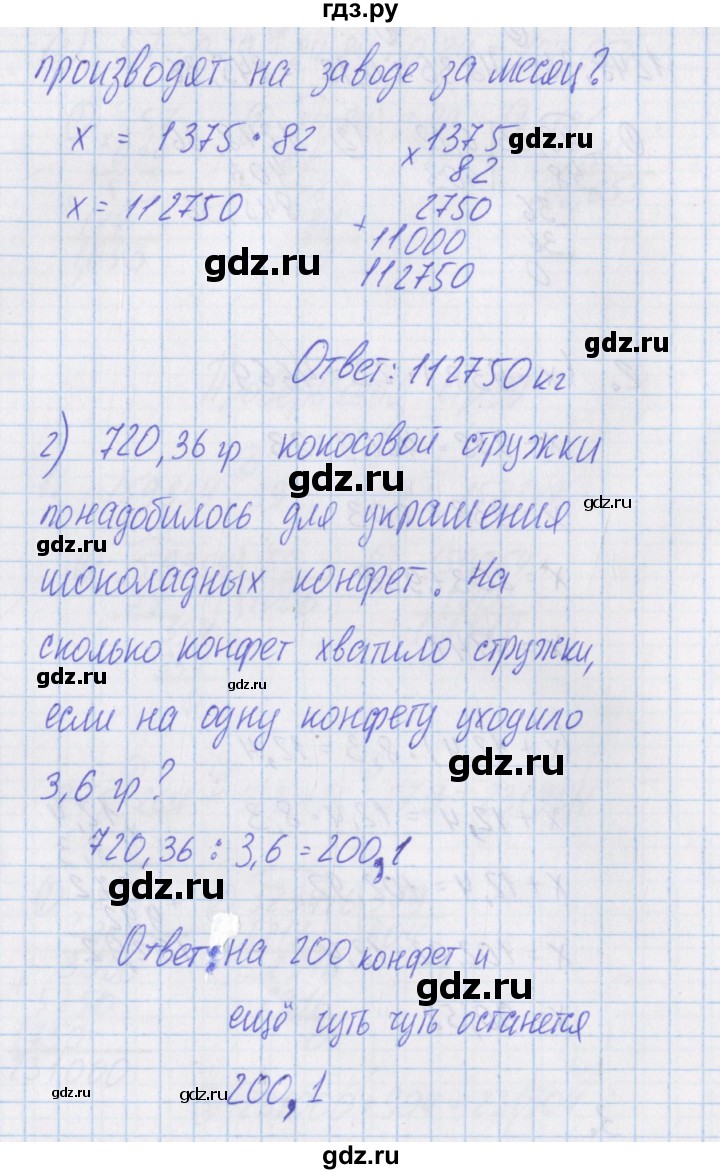 гдз.ру
производят на заводе за месяц?
x = 1375 · 82
x = 112750
1375
× 82
2750
+ 11000
112750
gdz.ru
gdz.ru
Ответ: 112750 кг
gdz.ru
г) 720,36 гр кокосовой стружки
gdz.ru
понадобилось для украшения
gdz.ru
gdz.ru
шоколадных конфет. На
сколько конфет хватило стружки,
gdz.ru
gdz.ru
если на одну конфету уходило
gdz.ru
3,6 гр?
720,36 : 3,6 = 200,1
gdz.ru
Ответ: на 200 конфет и
gdz.ru
ещё чуть чуть останется
gdz.ru
gdz.ru
200,1
gdz.ru